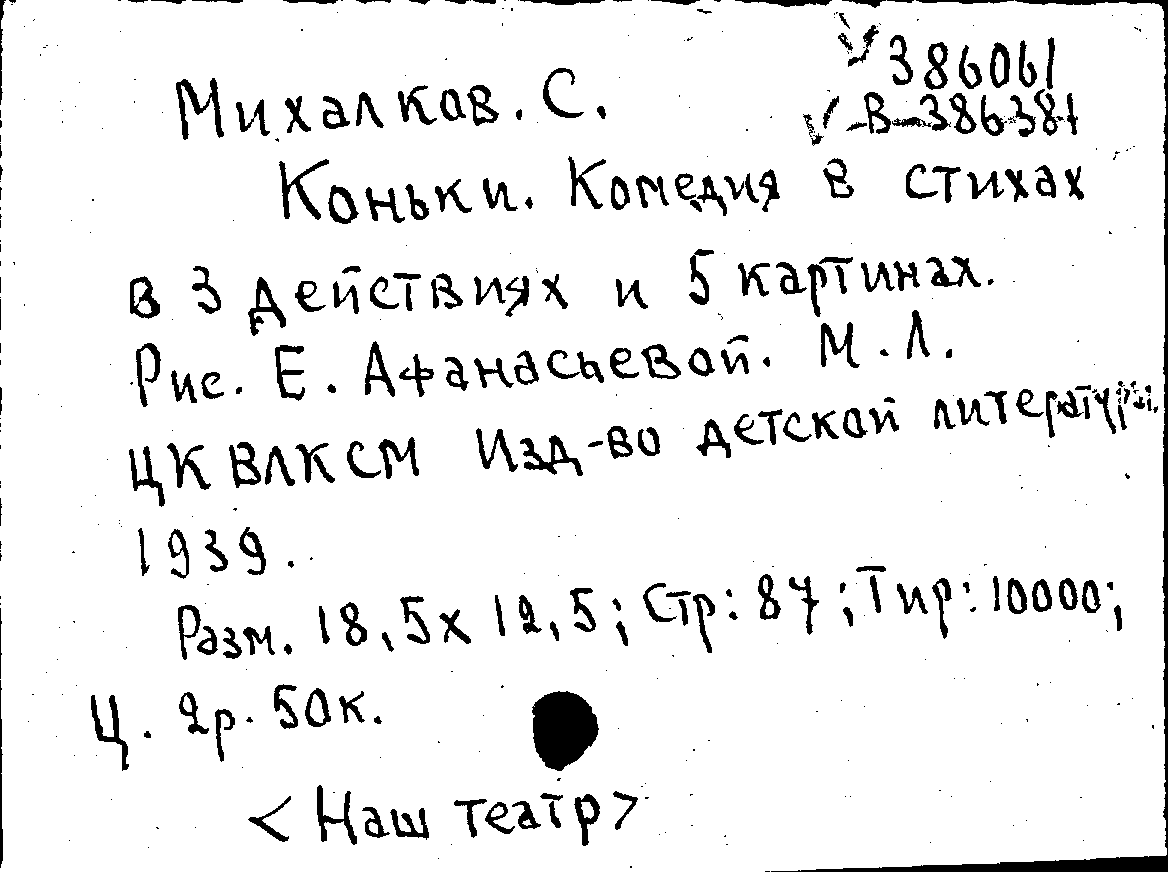 386061
Михалков. С.
В-386381
Коньки. Комедия в стихах
в 3 действиях и 5 картинах.
Рис. Е. Афанасьевой. М. Л.
ЦК ВЛКСМ Изд-во детской литературы.
1939.
Разм. 18,5х12,5; Стр: 87; Тир: 10000;
Ц. 2р. 50к.
<Наш театр>